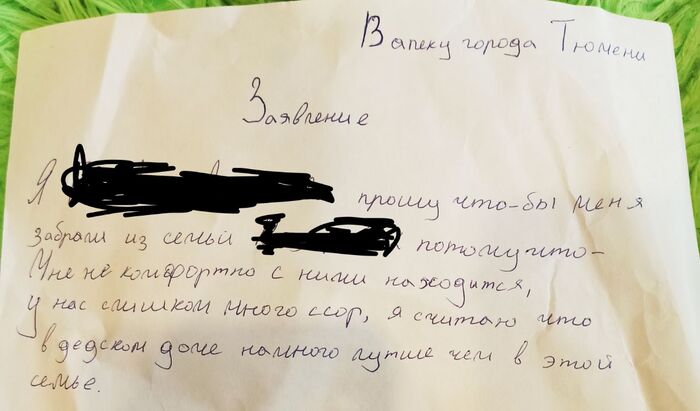 В апеку города Тюмени
Заявление
Я прошу что-бы меня
забрали из семьи потомучто-
Мне не комфортно с ними находится,
у нас слишком много ссор, я считаю что
в дедском доме намного лутше чем в этой
семье.